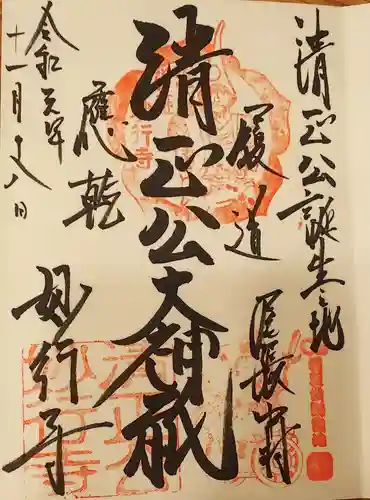 清正公誕生之地
尾張中村
履道
清正公大神祇
應乾
妙行寺
令和元年
十一月十八日